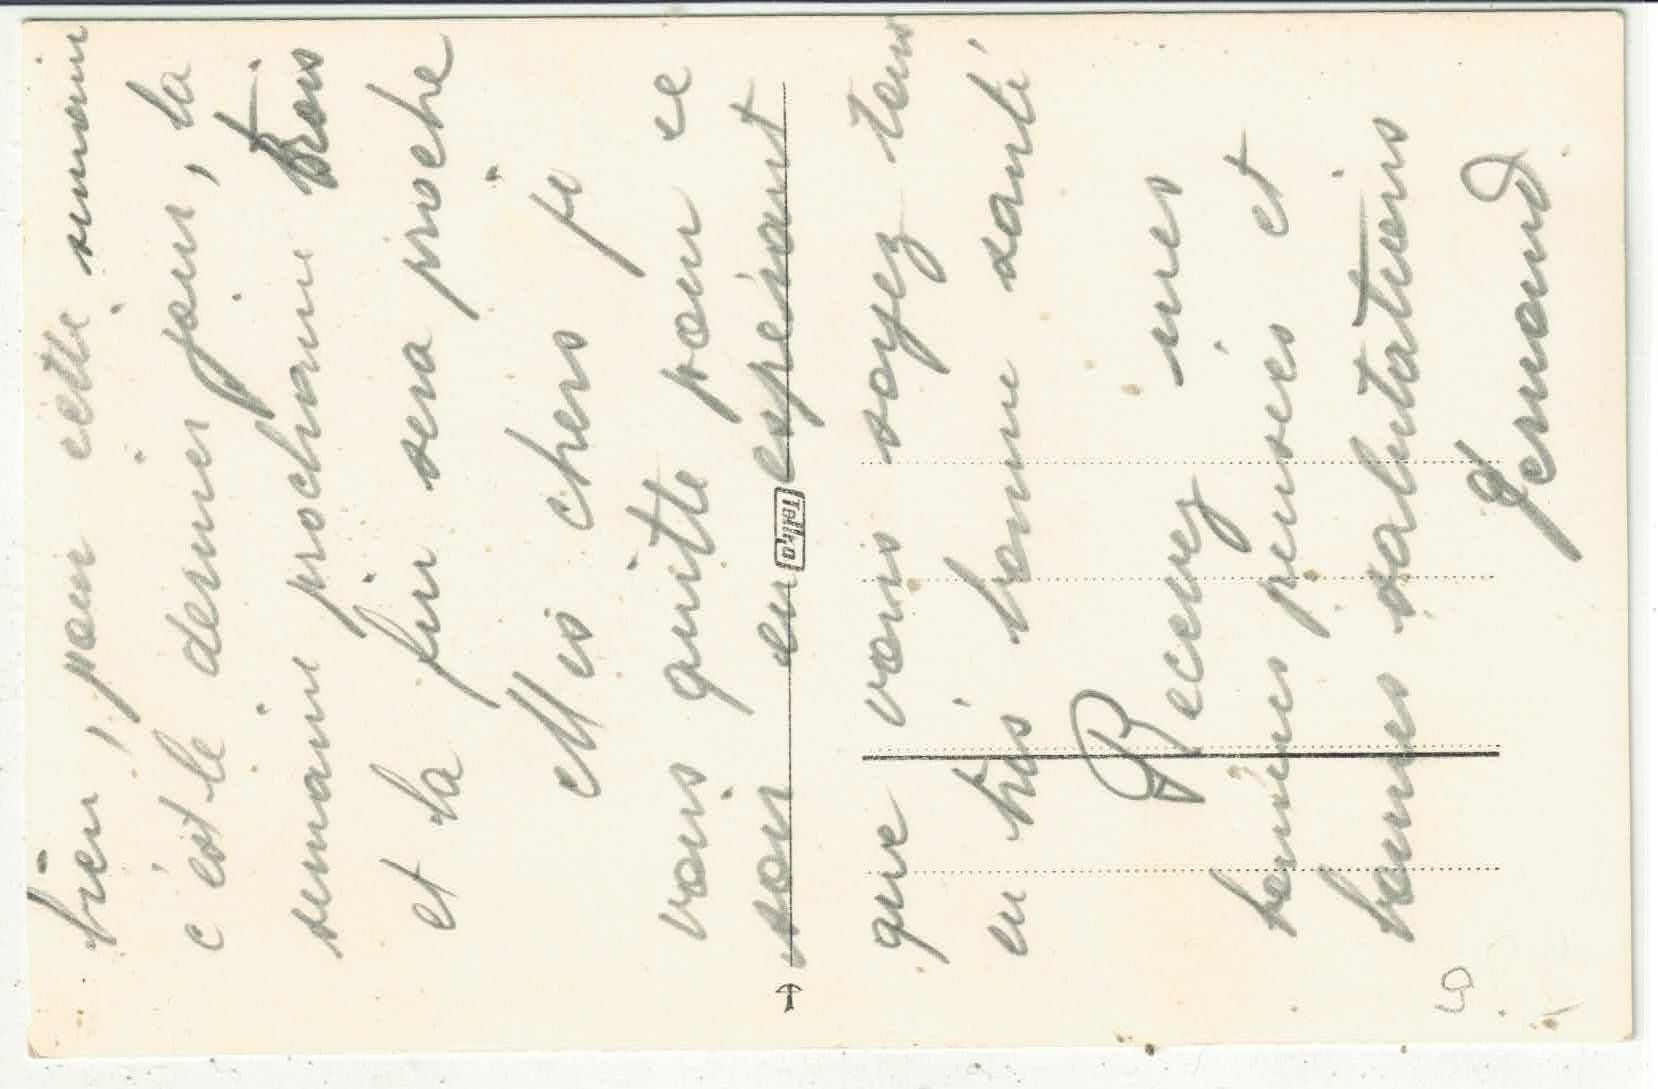 bien, pour cette semain
c'est le dernier jour, la
semaine prochaine trois
et la fin sera proche
Mes chers je
vous quitte pour ce
soir en espérant
que vous soyez tous
en très bonne santé
Recevez mes
bonnes pensées et
bonnes salutations
Fernand
Tellko